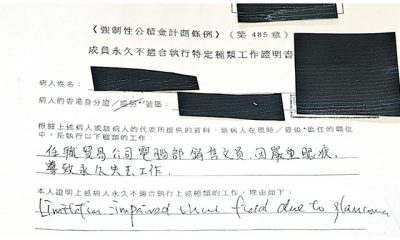 《強制性公積金計劃條例》(第 485 章)
成員永久不適合執行特定種類工作證明書
病人姓名：
病人的香港身分證／護照*號碼：
根據上述病人或該病人的代表所提供的資料，該病人在現時／最後*擔任的職位
中，是執行以下種類的工作：
任職貿易公司電腦部銷售文員，因嚴重眼疾，
導致永久失去工作．
本人證明上述病人永久不適合執行上述種類的工作，理由如下：
Limitation : impaired visual field due to glaucoma